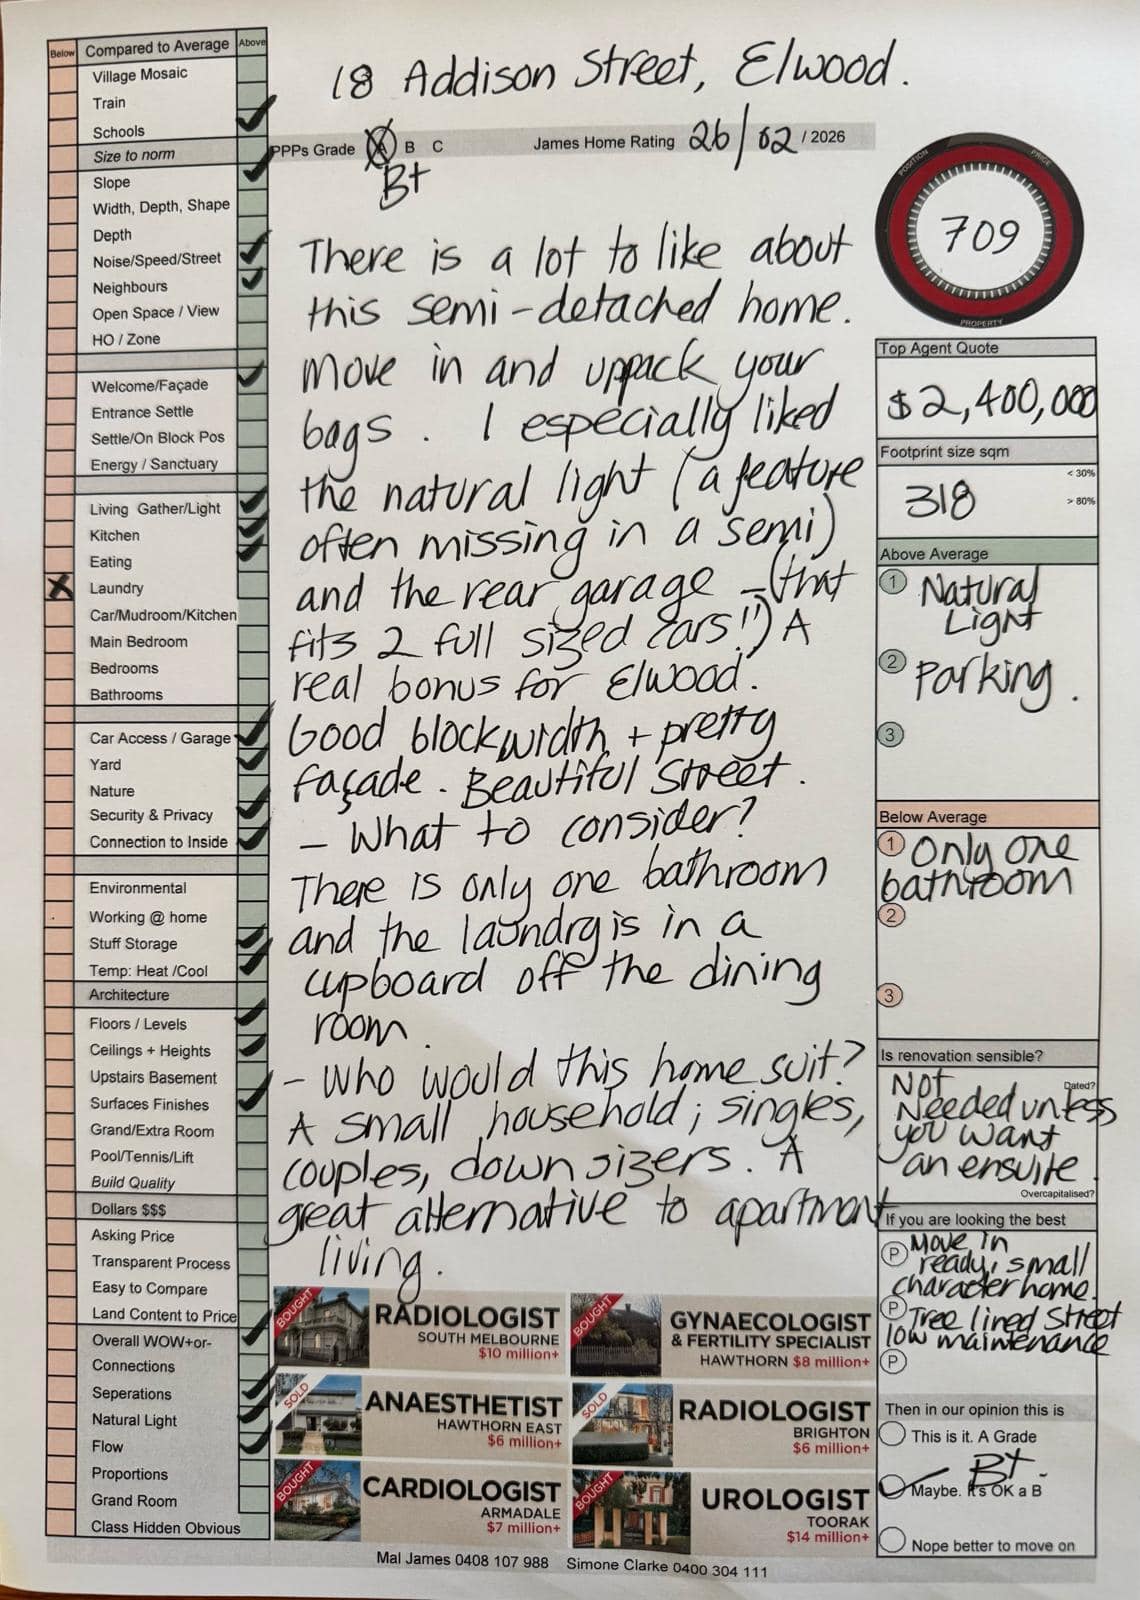 18 Addison Street, Elwood.
Below Compared to Average Above
Village Mosaic
Train
Schools
Size to norm
Slope
Width, Depth, Shape
Depth
Noise/Speed/Street
Neighbours
Open Space / View
HO / Zone
Welcome/Façade
Entrance Settle
Settle/On Block Pos
Energy / Sanctuary
Living Gather/Light
Kitchen
Eating
Laundry
Car/Mudroom/Kitchen
Main Bedroom
Bedrooms
Bathrooms
Car Access / Garage
Yard
Nature
Security & Privacy
Connection to Inside
Environmental
Working @ home
Stuff Storage
Temp: Heat /Cool
Architecture
Floors / Levels
Ceilings + Heights
Upstairs Basement
Surfaces Finishes
Grand/Extra Room
Pool/Tennis/Lift
Build Quality
Dollars $$$
Asking Price
Transparent Process
Easy to Compare
Land Content to Price
Overall WOW+or-
Connections
Seperations
Natural Light
Flow
Proportions
Grand Room
Class Hidden Obvious
PPPs Grade A B C James Home Rating 26/02 / 2026
B+
There is a lot to like about
this semi-detached home.
Move in and uppack your
bags. I especially liked
the natural light (a feature
often missing in a semi)
and the rear garage - (that
fits 2 full sized cars!!) A
real bonus for Elwood.
Good block width + pretty
façade. Beautiful Street.
- What to consider?
There is only one bathroom
and the laundry is in a
cupboard off the dining
room.
- Who would this home suit?
A small household; singles,
couples, downsizers. A
great alternative to apartment
living.
POSITION PRICE
709
PROPERTY
Top Agent Quote
$2,400,000
Footprint size sqm
< 30%
318
> 80%
Above Average
1 Natural
Light
2 Parking.
3
Below Average
1 Only one
bathroom
2
3
Is renovation sensible?
Dated?
Not
Needed unless
you want
an ensuite.
Overcapitalised?
If you are looking the best
P Move in
ready, small
character home.
P Tree lined Street
low maintenance
P
Then in our opinion this is
This is it. A Grade
B+.
Maybe. It's OK a B
Nope better to move on
BOUGHT
RADIOLOGIST
SOUTH MELBOURNE
$10 million+
BOUGHT
GYNAECOLOGIST
& FERTILITY SPECIALIST
HAWTHORN $8 million+
SOLD
ANAESTHETIST
HAWTHORN EAST
$6 million+
SOLD
RADIOLOGIST
BRIGHTON
$6 million+
BOUGHT
CARDIOLOGIST
ARMADALE
$7 million+
BOUGHT
UROLOGIST
TOORAK
$14 million+
Mal James 0408 107 988 Simone Clarke 0400 304 111